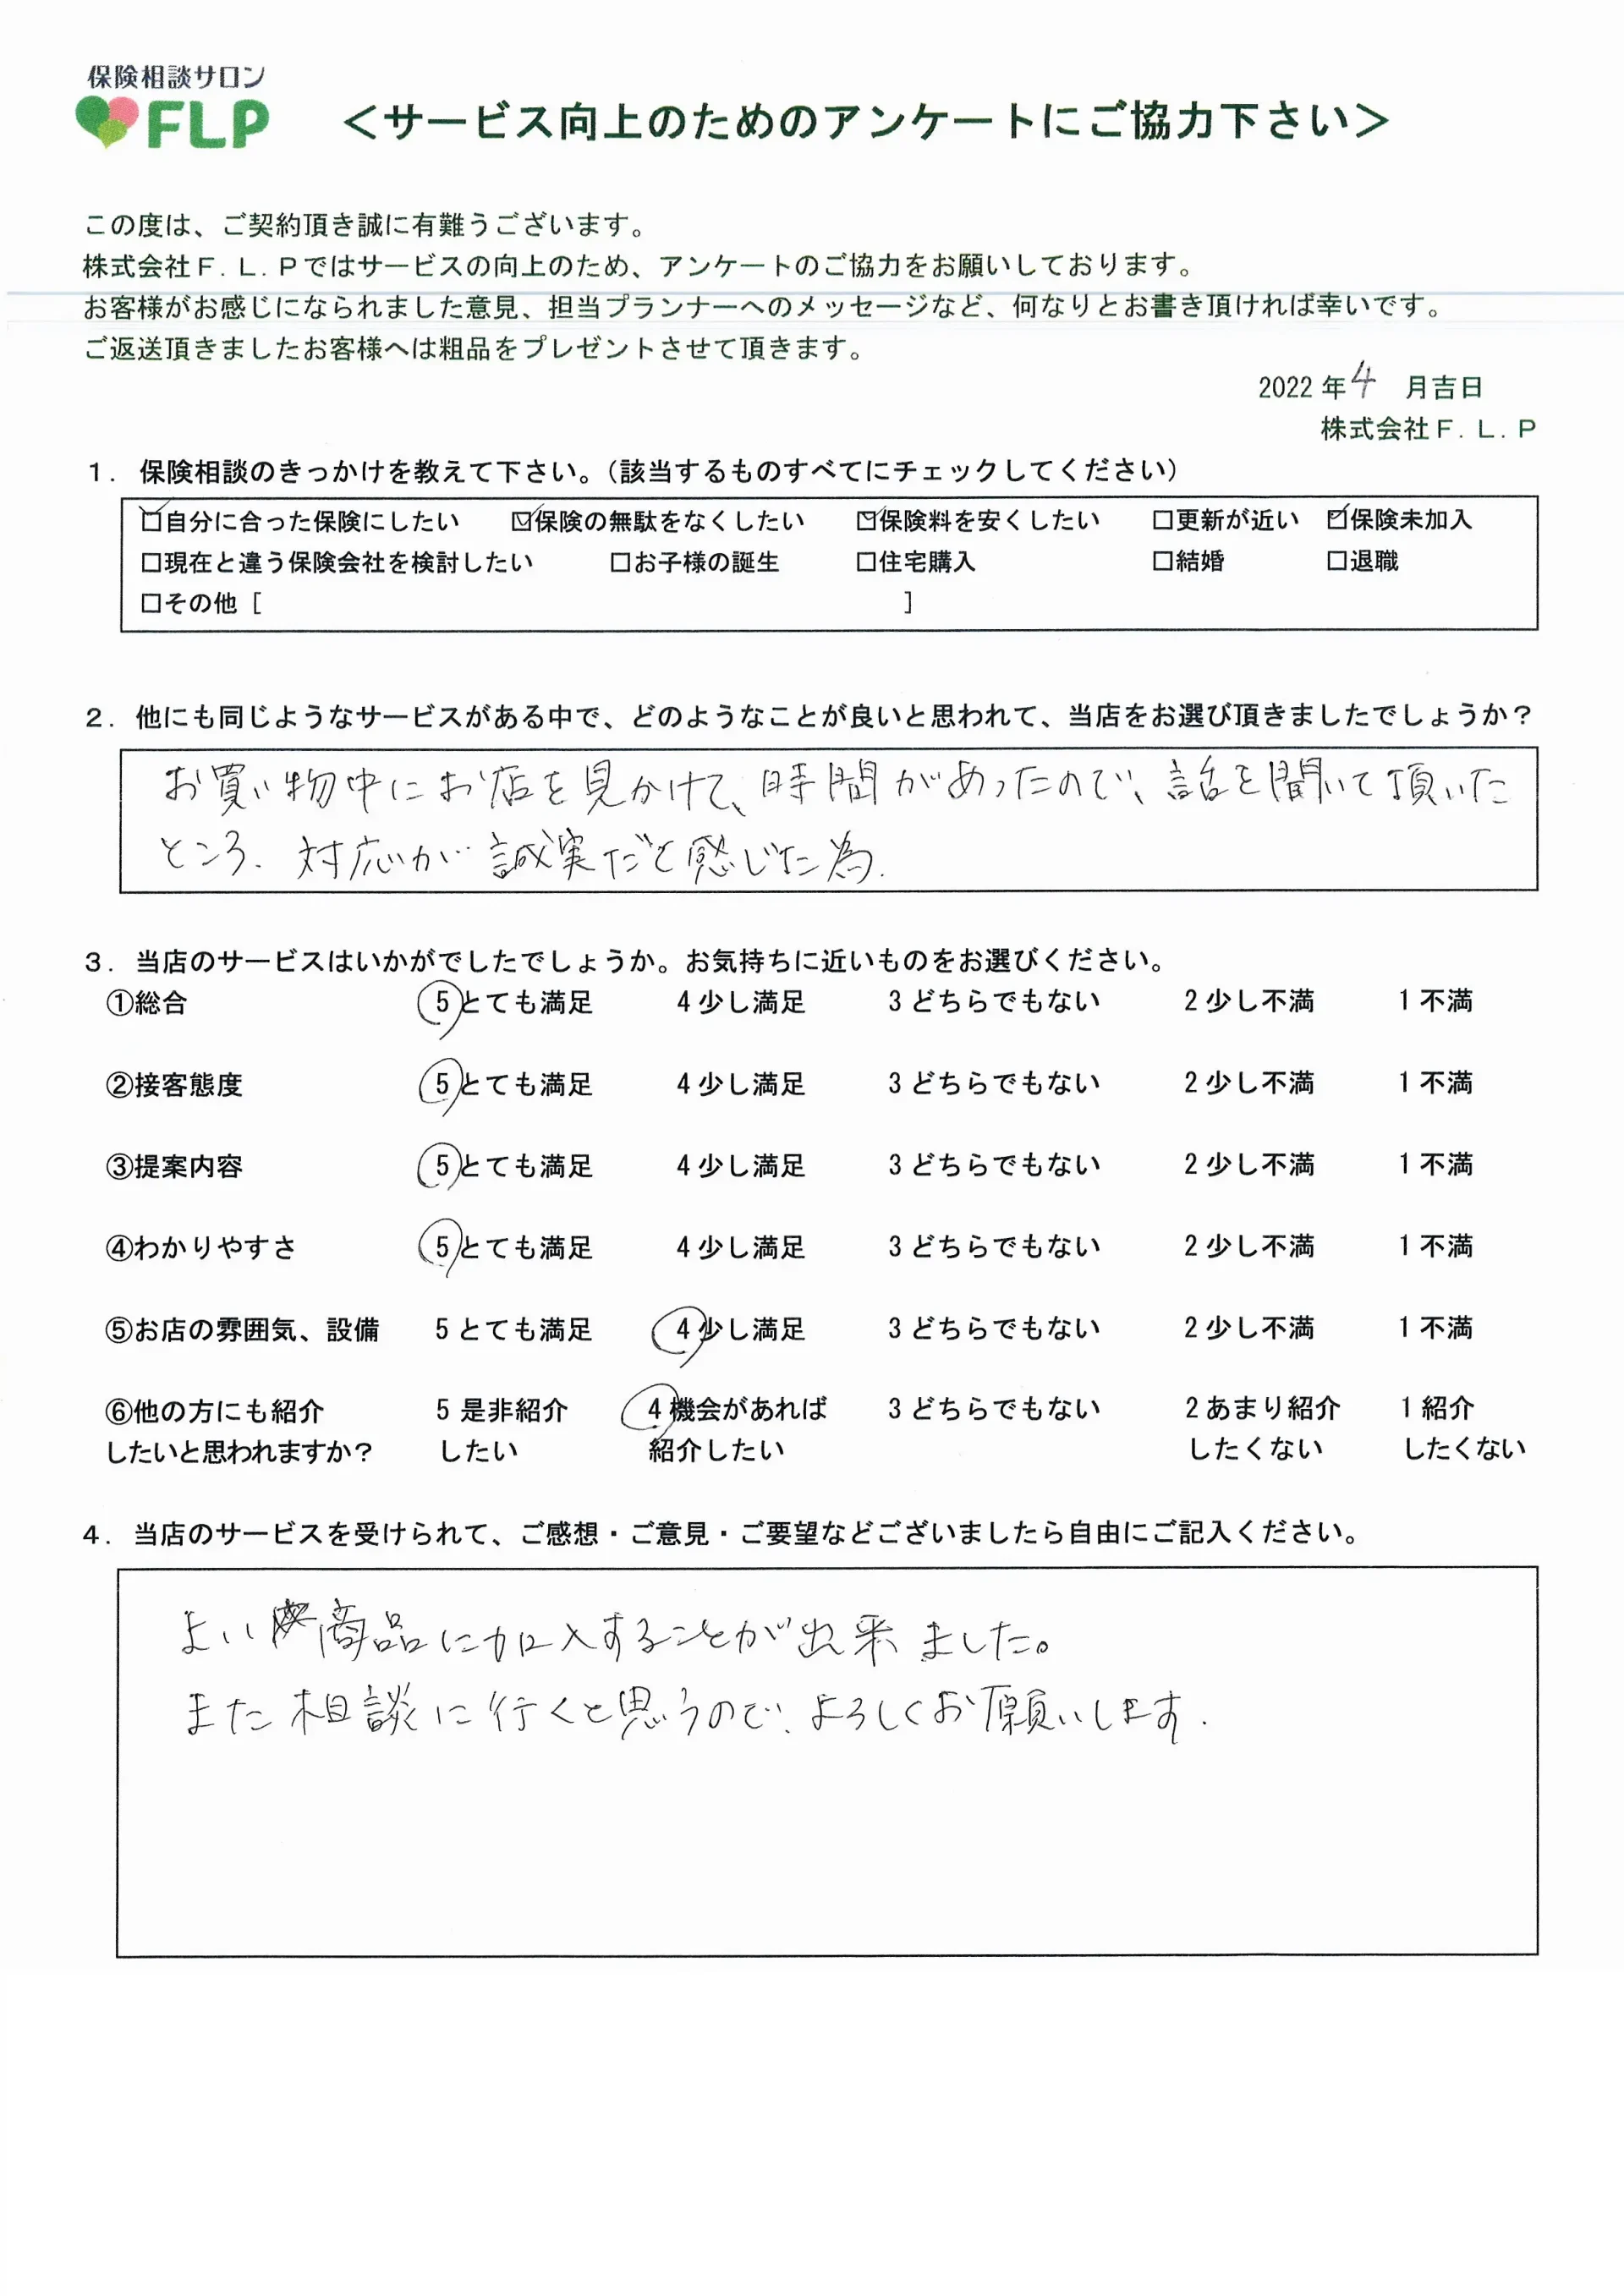 保険相談サロン
FLP
＜サービス向上のためのアンケートにご協力下さい＞
この度は、ご契約頂き誠に有難うございます。
株式会社Ｆ．Ｌ．Ｐではサービスの向上のため、アンケートのご協力をお願いしております。
お客様がお感じになられました意見、担当プランナーへのメッセージなど、何なりとお書き頂ければ幸いです。
ご返送頂きましたお客様へは粗品をプレゼントさせて頂きます。
2022年4 月吉日
株式会社Ｆ．Ｌ．Ｐ
１．保険相談のきっかけを教えて下さい。（該当するものすべてにチェックしてください）
☑自分に合った保険にしたい ☑保険の無駄をなくしたい ☑保険料を安くしたい □更新が近い ☑保険未加入
□現在と違う保険会社を検討したい □お子様の誕生 □住宅購入 □結婚 □退職
□その他［ ］
２．他にも同じようなサービスがある中で、どのようなことが良いと思われて、当店をお選び頂きましたでしょうか？
お買い物中にお店を見かけて、時間があったので、話を聞いて頂いた
ところ、対応が誠実だと感じた為.
３．当店のサービスはいかがでしたでしょうか。お気持ちに近いものをお選びください。
①総合 5 とても満足 4 少し満足 3 どちらでもない 2 少し不満 1 不満
②接客態度 5 とても満足 4 少し満足 3 どちらでもない 2 少し不満 1 不満
③提案内容 5 とても満足 4 少し満足 3 どちらでもない 2 少し不満 1 不満
④わかりやすさ 5 とても満足 4 少し満足 3 どちらでもない 2 少し不満 1 不満
⑤お店の雰囲気、設備 5 とても満足 4 少し満足 3 どちらでもない 2 少し不満 1 不満
⑥他の方にも紹介 5 是非紹介 4 機会があれば 3 どちらでもない 2 あまり紹介 1 紹介
したいと思われますか？ したい 紹介したい したくない したくない
４．当店のサービスを受けられて、ご感想・ご意見・ご要望などございましたら自由にご記入ください。
よい商品に加入することが出来ました。
また相談に行くと思うので、よろしくお願いします.